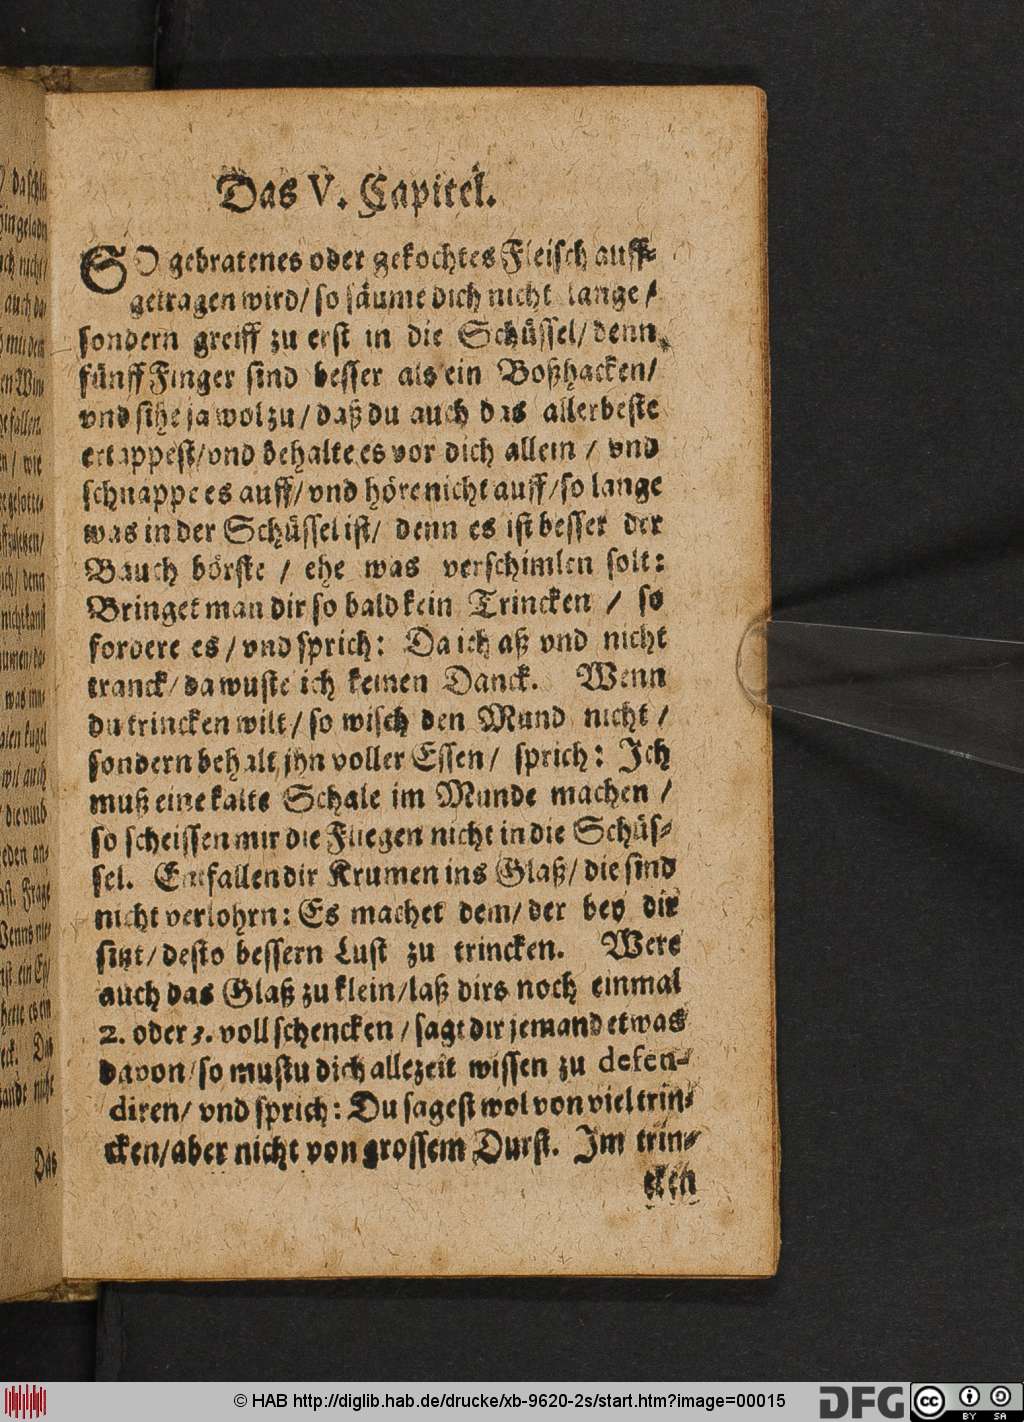 Das V. Capitel.
SO gebratenes oder gekochtes Fleisch auff-
getragen wird/ so säume dich nicht lange/
sondern greiff zu erst in die Schüssel/ denn
fünff Finger sind besser als ein Boßhacken/
vnd sihe ja wol zu/ daß du auch das allerbeste
ertappest/ vnd behalte es vor dich allein / vnd
schnappe es auff/ vnd höre nicht auff/ so lange
was in der Schüssel ist/ denn es ist besser der
Bauch börste / ehe was verschimlen solt:
Bringet man dir so bald kein Trincken / so
fordere es / vnd sprich: Da ich aß vnd nicht
tranck/ da wuste ich keinen Danck. Wenn
du trincken wilt/ so wisch den Mund nicht /
sondern behalt jhn voller Essen/ sprich: Ich
muß eine kalte Schale im Munde machen /
so scheissen mir die Fliegen nicht in die Schüs-
sel. Entfallen dir Krumen ins Glaß/ die sind
nicht verlohrn: Es machet dem/ der bey dir
sitzt/ desto bessern Lust zu trincken. Were
auch das Glaß zu klein/ laß dirs noch einmal
2. oder 3. voll schencken / sagt dir jemand etwas
davon/ so mustu dich allezeit wissen zu defen-
diren/ vnd sprich: Du sagest wol von viel trin-
cken/ aber nicht von grossem Durst. Im trin-
cken
Das
© HAB http://diglib.hab.de/drucke/xb-9620-2s/start.htm?image=00015
DFG
cc
BY SA